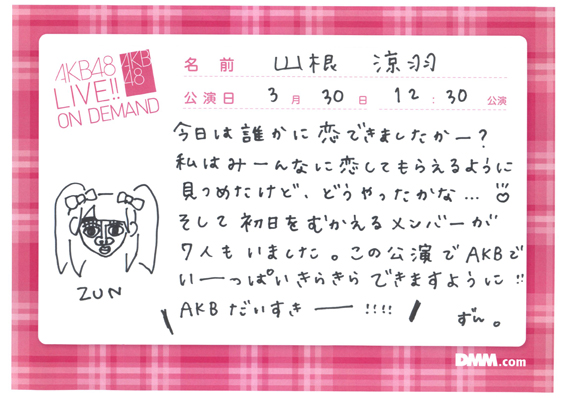 AKB48
LIVE!!
ON DEMAND
AKB
48
名前 山根 涼羽
公演日 3月30日 12:30公演
今日は誰かに恋できましたかー?
私はみーんなに恋してもらえるように
見つめたけど、どうやったかな...♡
そして初日をむかえるメンバーが
7人もいました。この公演でAKBで
いーっぱいきらきらできますように!!
\ AKBだいすきー!!!! /
ずん。
ZUN
DMM.com